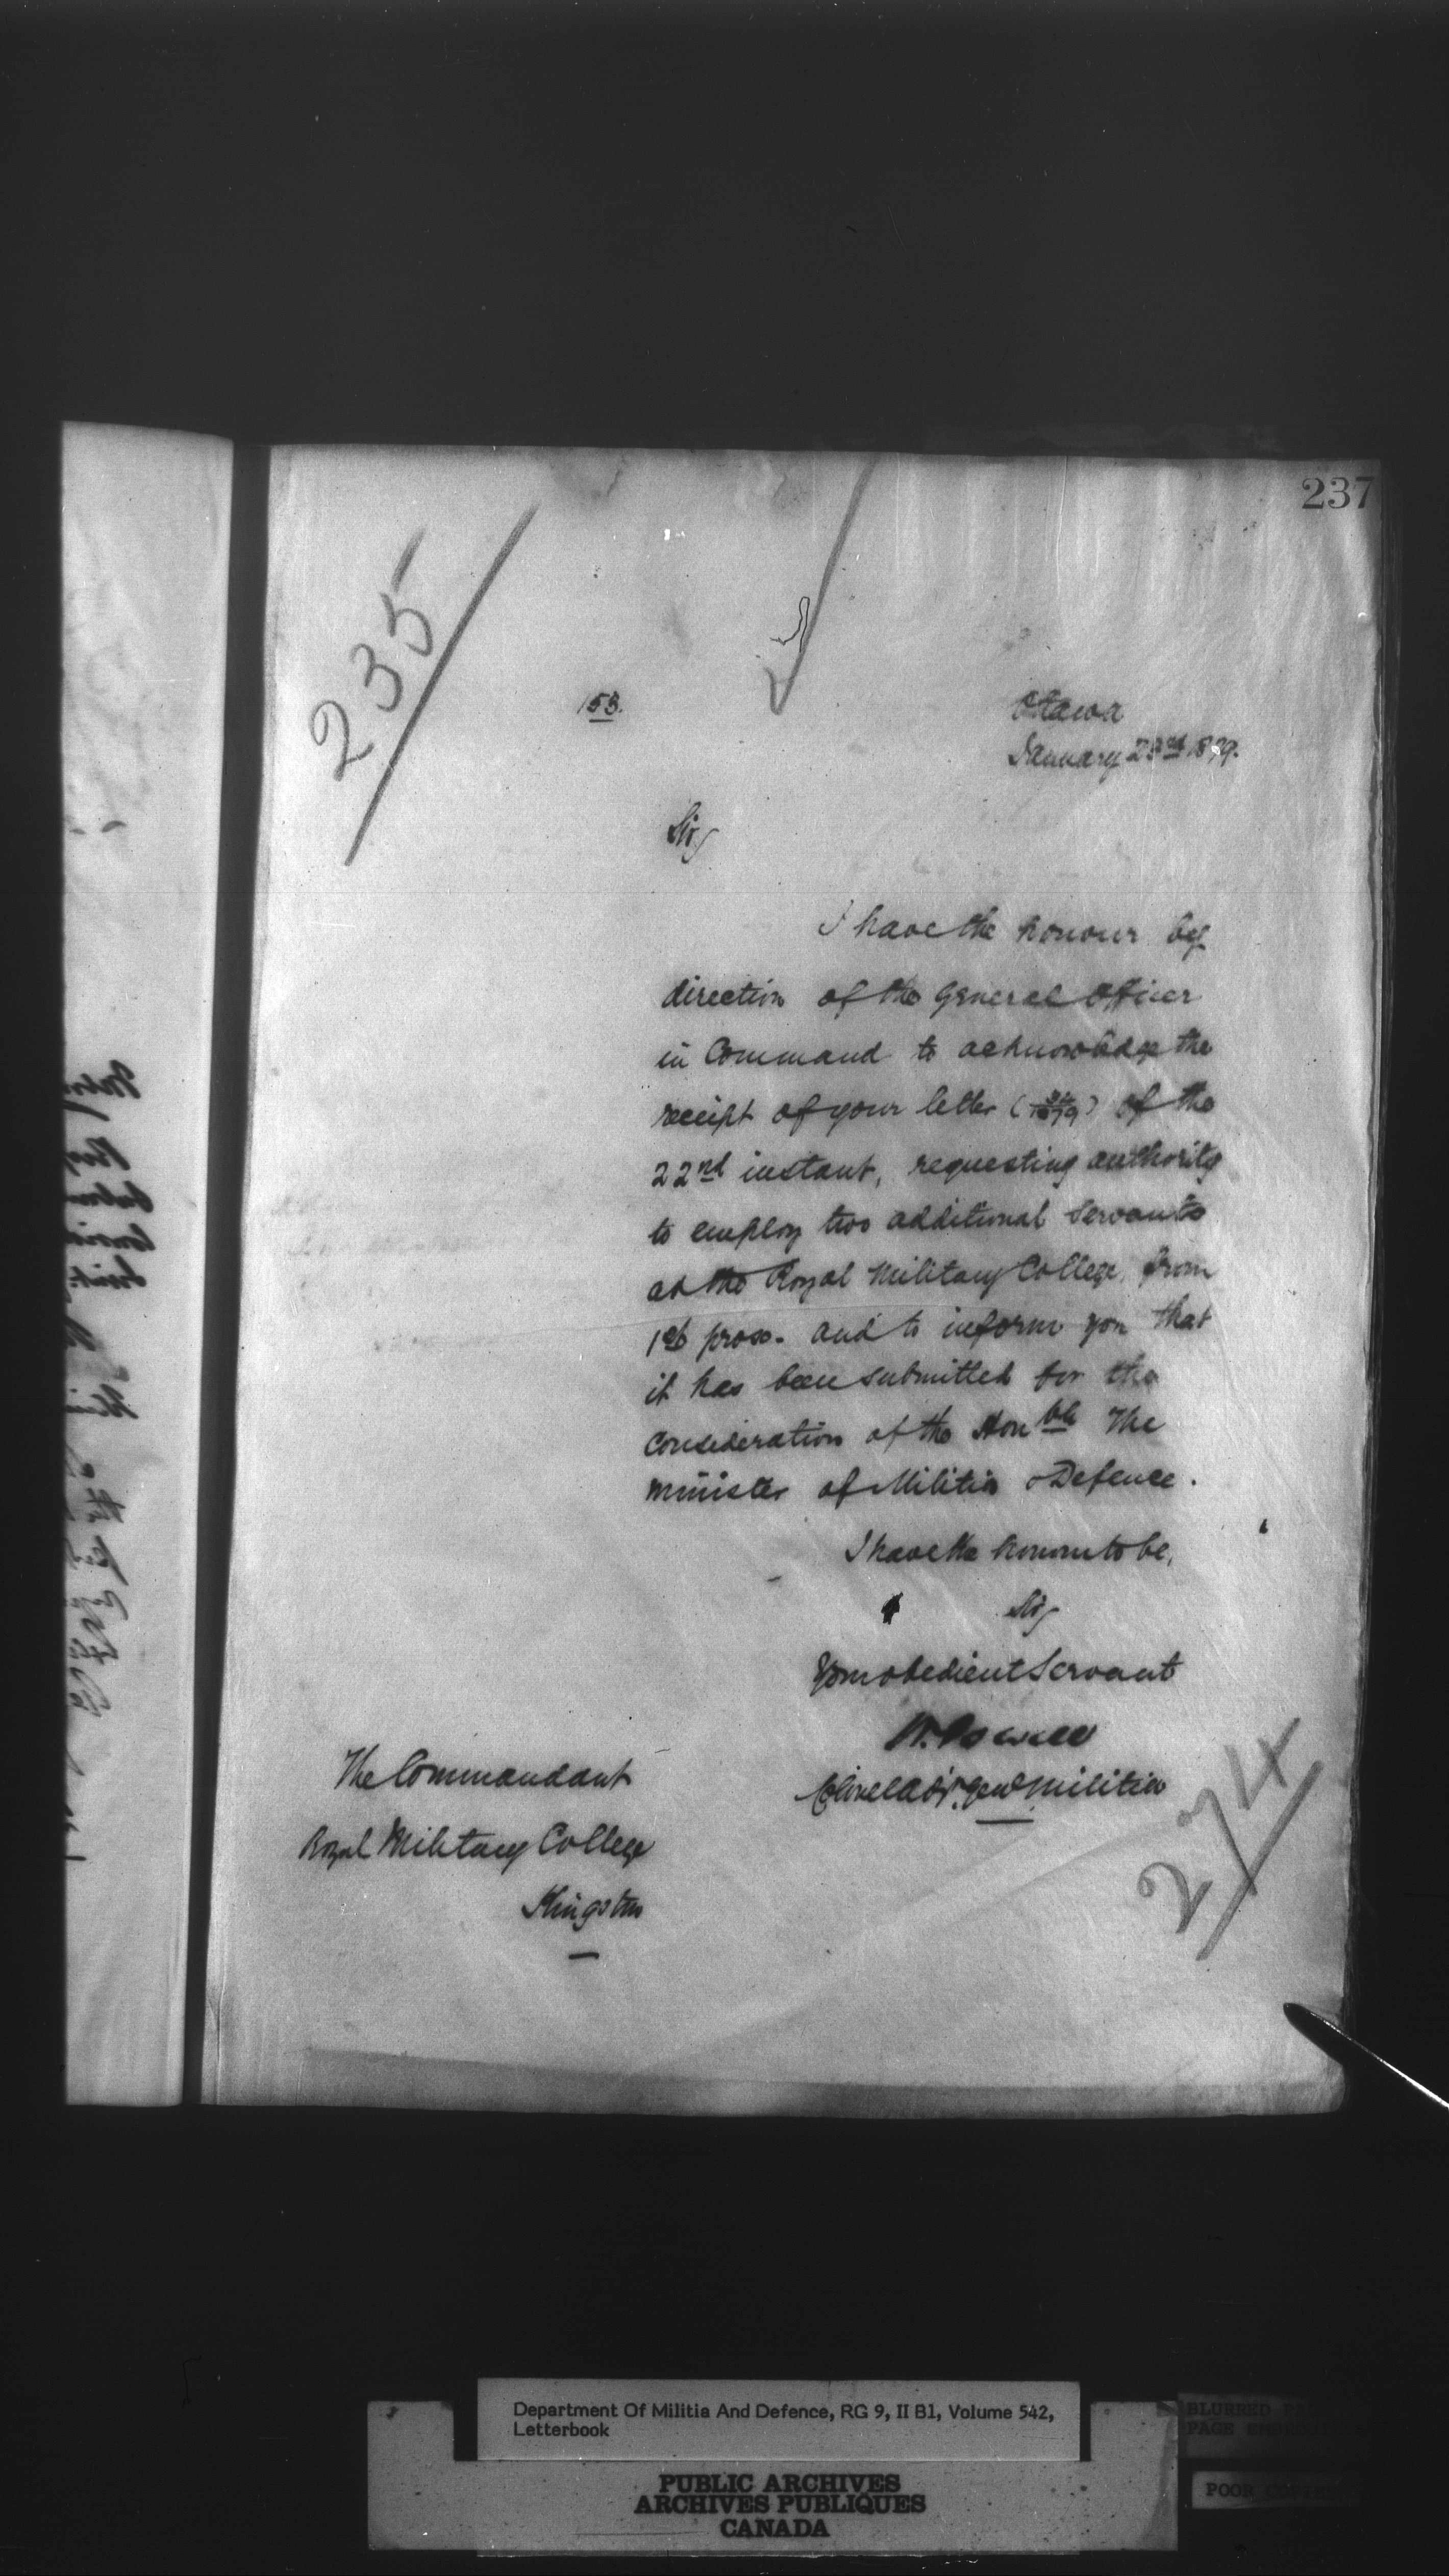 237
235
153.
Ottawa
January 23rd 1879.
Sir,
I have the honour by
direction of the General Officer
in Command to acknowledge the
receipt of your letter (34/1879) of the
22nd instant, requesting authority
to employ two additional servants
at the Royal Military College, from
1st prox. and to inform you that
it has been submitted for the
consideration of the Honble The
Minister of Militia & Defence.
I have the honour to be,
Sir,
Your obedient Servant
W. Powell
Colonel Adj. Genl Militia
The Commandant
Royal Military College
Kingston
274
Department Of Militia And Defence, RG 9, II B1, Volume 542,
Letterbook
BLURRED
PAGE
POOR
PUBLIC ARCHIVES
ARCHIVES PUBLIQUES
CANADA